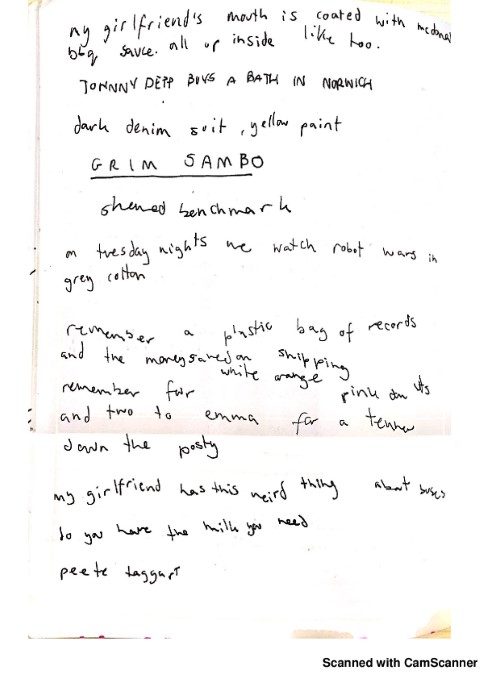 my girlfriend's mouth is coated with mcdonal
bbq sauce. all up inside like too.
JONNNY DEPP BUYS A BATH IN NORWICH
dark denim suit, yellow paint
GRIM SAMBO
benchmark
on tuesday nights we watch robot wars in
grey cotton
remember a plastic bag of records
and the money saved on shipping
remember for white orange pink
and two to emma for a tenner
down the posty
my girlfriend has this weird thing about buses
do you have the milk you need
peete taggart
Scanned with CamScanner